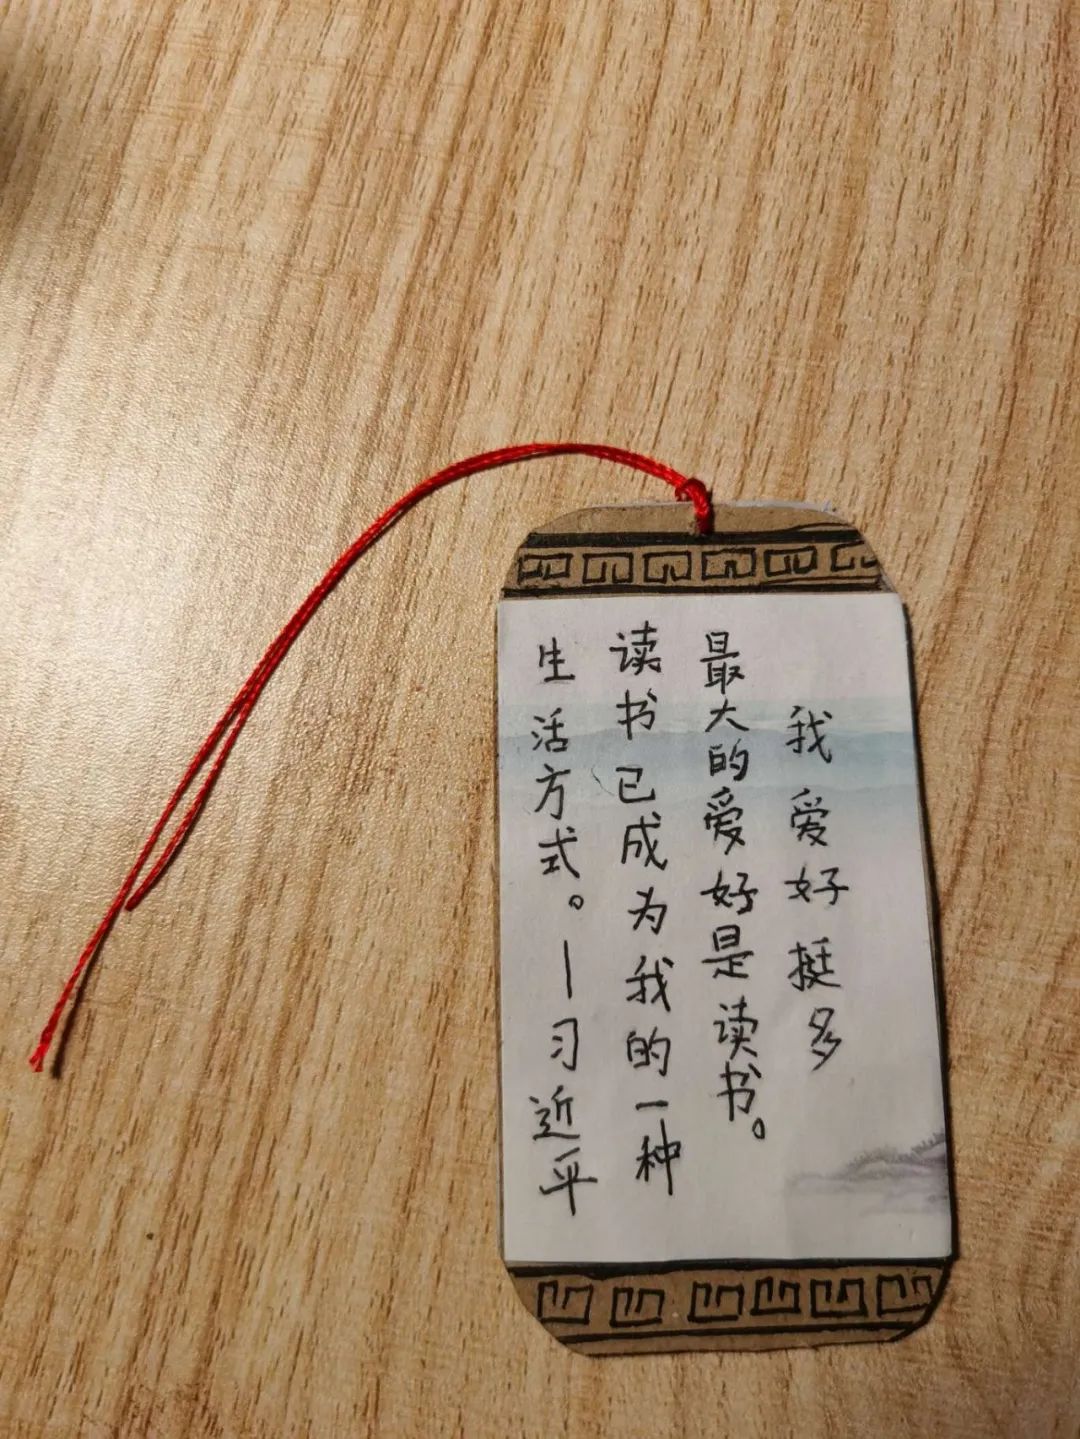 我爱好挺多
最大的爱好是读书。
读书已成为我的一种
生活方式。—习近平